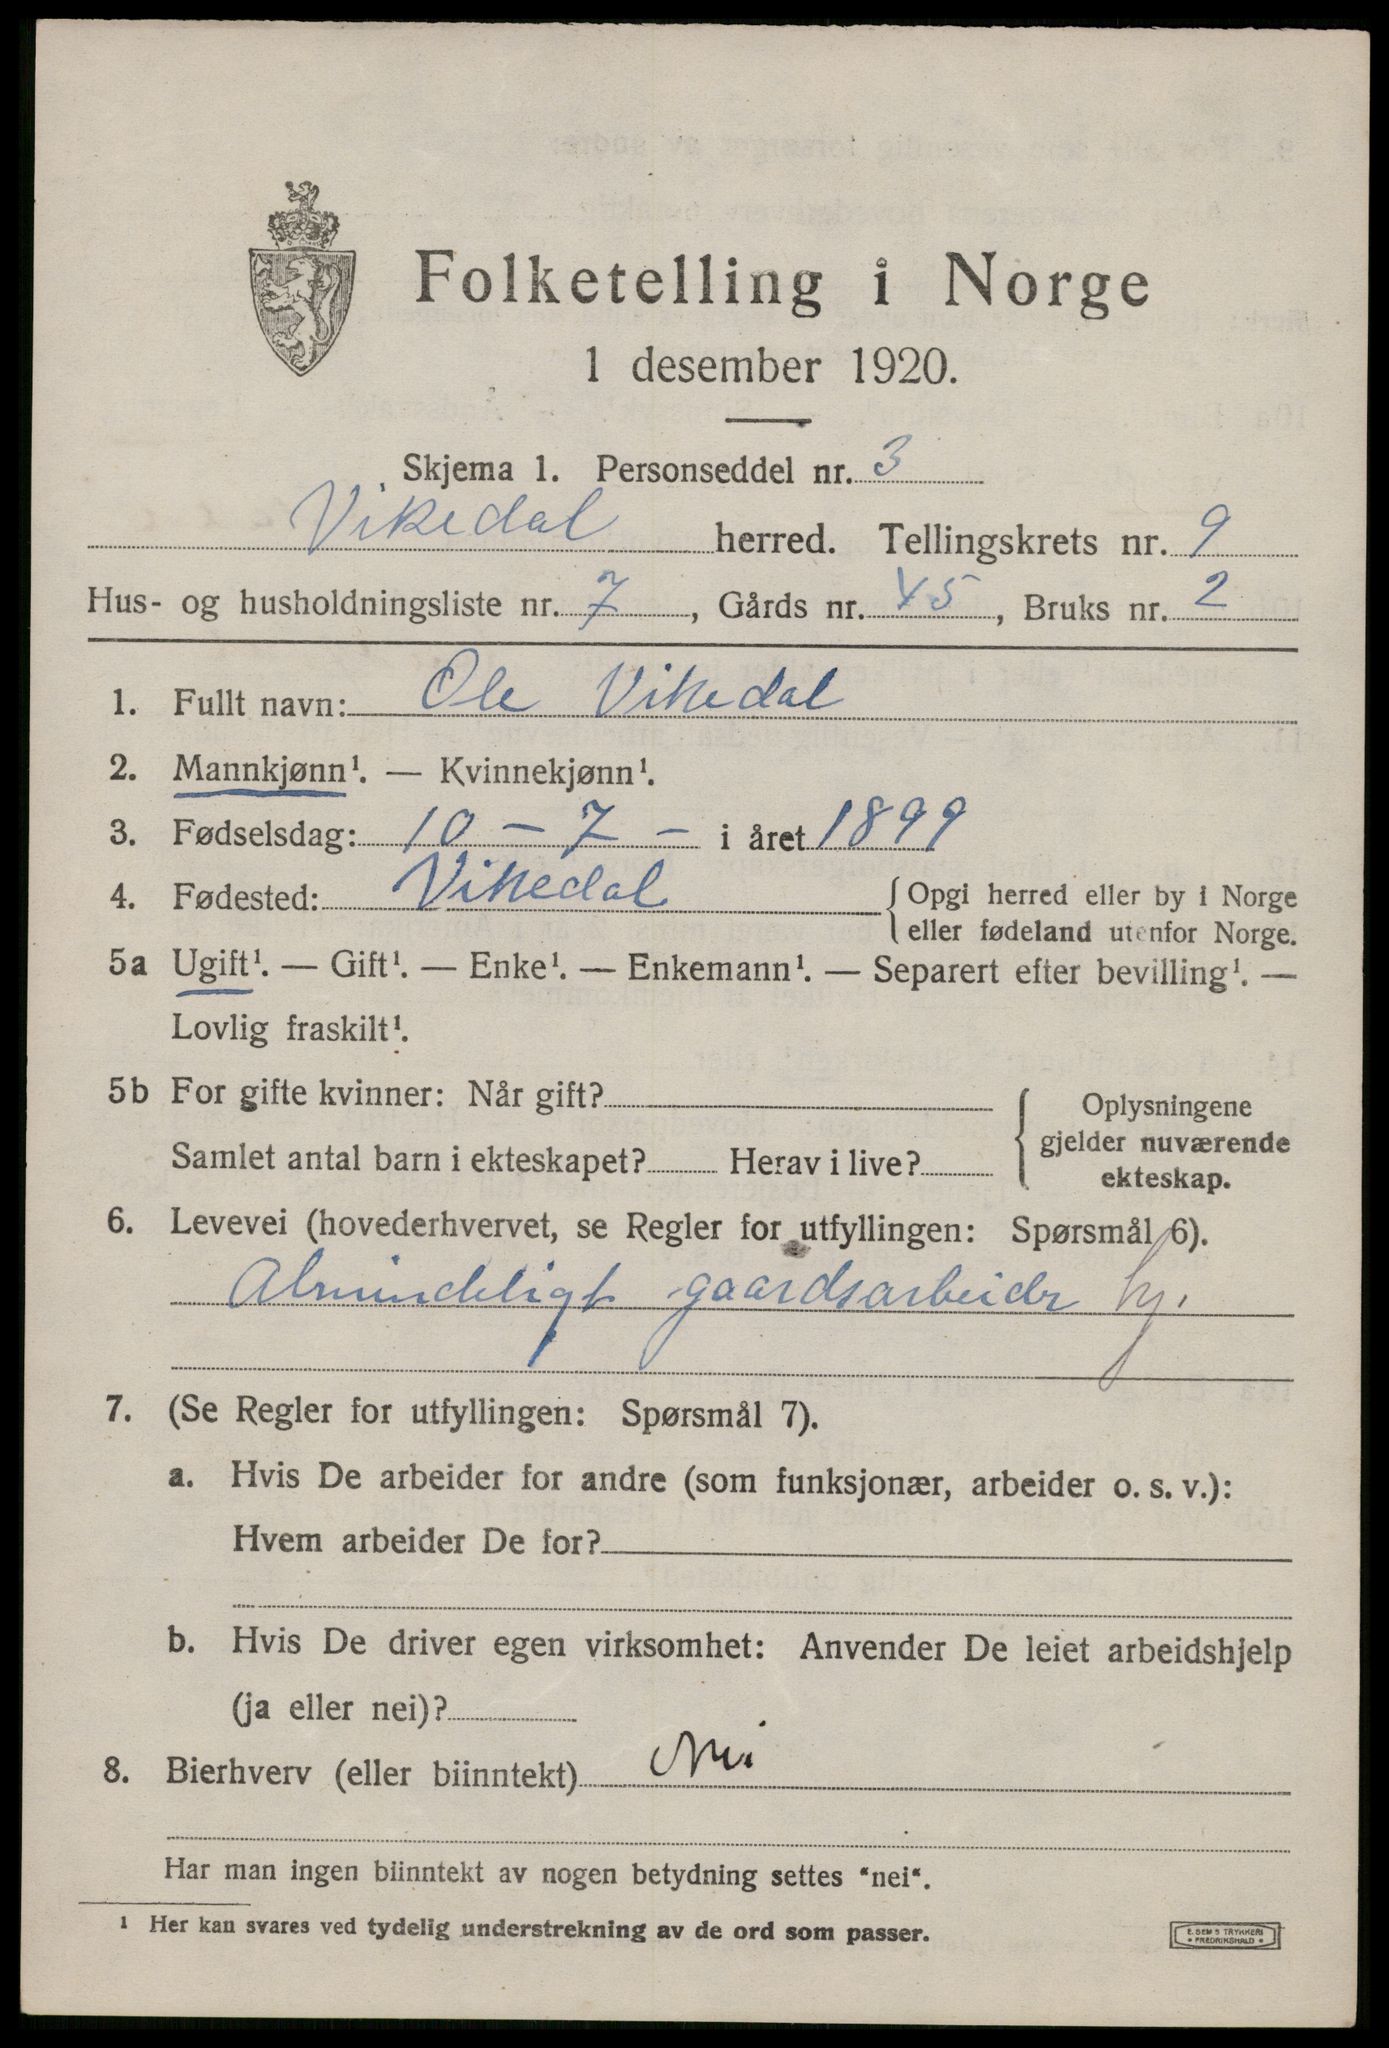 Folketelling i Norge
1 desember 1920.
Skjema 1. Personseddel nr. 3
Vikedal herred. Tellingskrets nr. 9
Hus- og husholdningsliste nr. 7, Gårds nr. 45, Bruks nr. 2
1. Fullt navn: Ole Vikedal
2. Mannkjønn¹. — Kvinnekjønn¹.
3. Fødselsdag: 10 - 7 - i året 1899
4. Fødested: Vikedal { Opgi herred eller by i Norge
eller fødeland utenfor Norge.
5a Ugift¹. — Gift¹. — Enke¹. — Enkemann¹. — Separert efter bevilling¹. —
Lovlig fraskilt¹.
5b For gifte kvinner: Når gift?
Samlet antal barn i ekteskapet? Herav i live?
Oplysningene
gjelder nuværende
ekteskap.
6. Levevei (hovederhvervet, se Regler for utfyllingen: Spørsmål 6).
Almindeligt gaardsarbeide hj.
7. (Se Regler for utfyllingen: Spørsmål 7).
a. Hvis De arbeider for andre (som funksjonær, arbeider o. s. v.):
Hvem arbeider De for?
b. Hvis De driver egen virksomhet: Anvender De leiet arbeidshjelp
(ja eller nei)?
8. Bierhverv (eller biinntekt) Nei
Har man ingen biinntekt av nogen betydning settes "nei".
1 Her kan svares ved tydelig understrekning av de ord som passer.
E. SEM'S TRYKKERI
• FREDRIKSHALD •